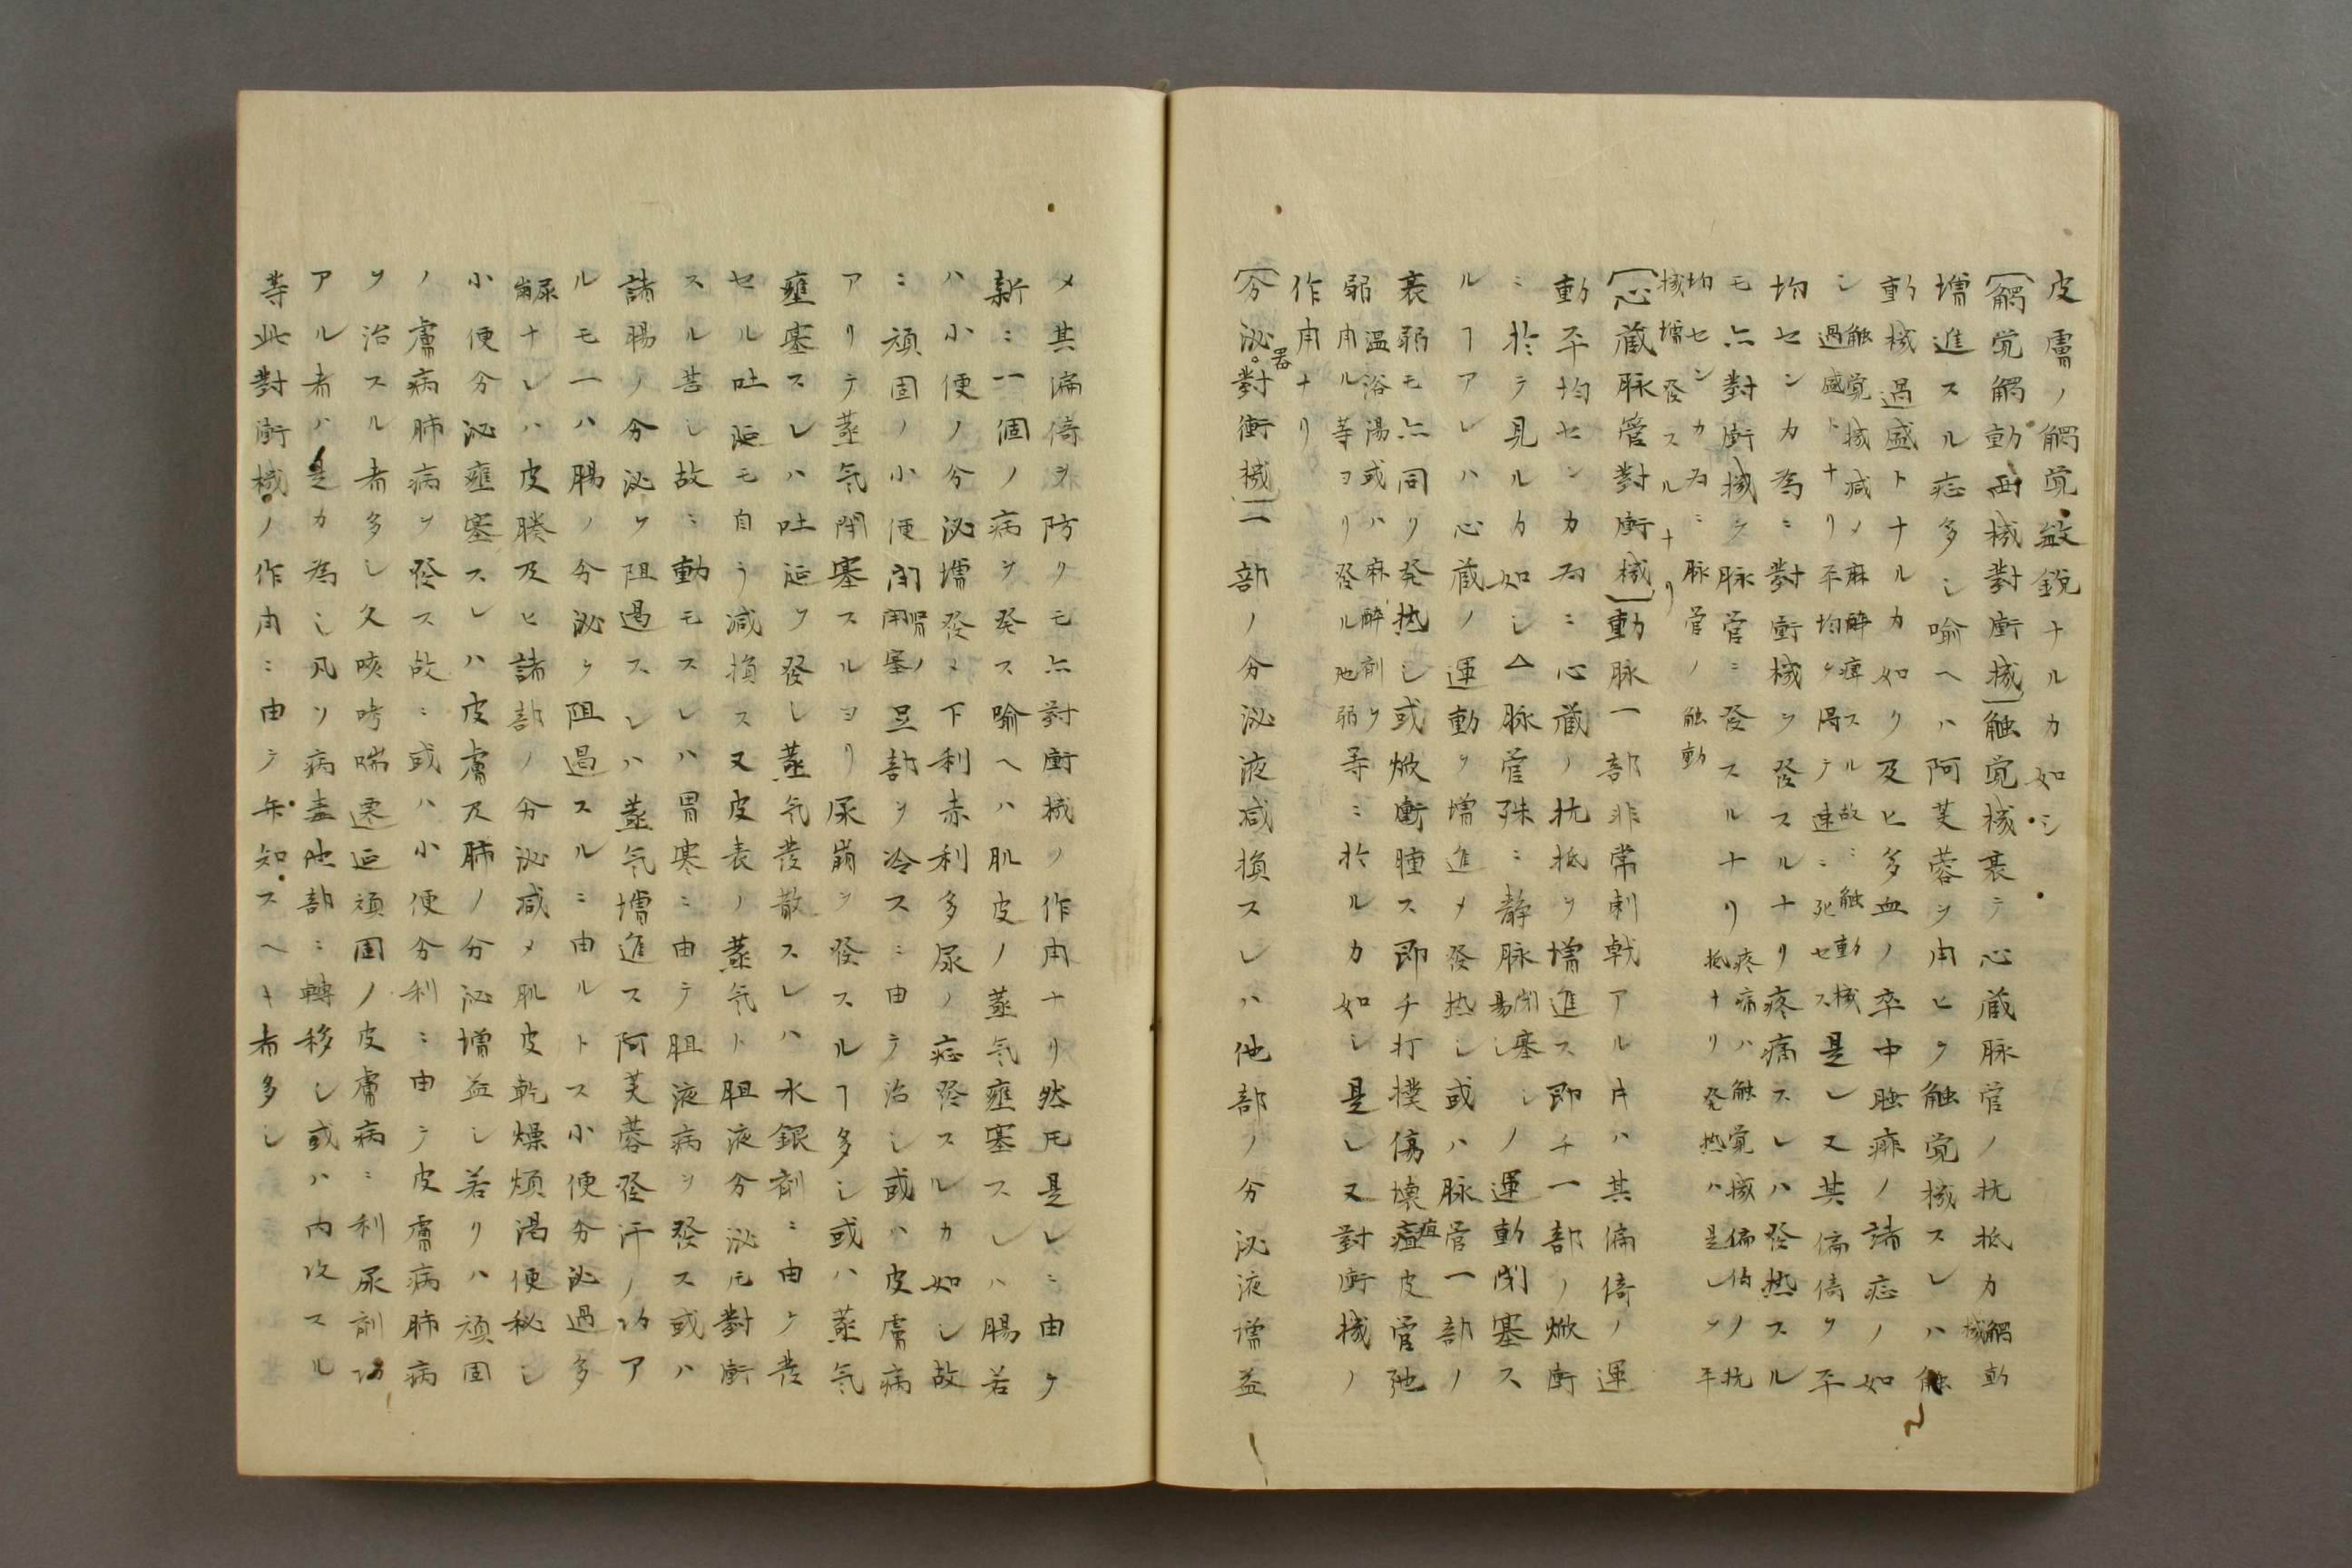 皮膚ノ觸覚敏鋭ナルカ如シ
觸覚觸動両械對衝械触覚械衰テ心蔵脉管ノ抗抵力觸動械
増進スル症多シ喩ヘハ阿芙蓉ヲ用ヒテ触覚械スレハ触
動械過盛トナルカ如ク及ヒ多血ノ卒中𦙾痱ノ諸症ノ如
シ触覚械減メ麻醉痺スル故ニ触動械過感トナリ平均ヲ得テ速ニ死セス是レ又其偏倚ヲ平
均センカ為ニ對衝械ヲ發スルナリ疼痛スレハ發热スル
モ亦對衝械ヲ脉管ニ發スルナリ疼痛ハ触覚械偏倚ノ抗抵ナリ發热ハ是レヲ平
均センカ為ニ脉管ノ触動械増發スルナリ
心蔵脉管對衝械動脉一部非常刺戟アル片ハ其偏倚ノ運
動平均センカ為ニ心蔵ノ抗抵ヲ増進ス即チ一部ノ焮衝
ニ於テ見ルカ如シ△脉管殊ニ静脉閉塞シ易シノ運動閉塞ス
ルヿアレハ心蔵ノ運動ヲ増進メ發热シ或ハ脉管一部ノ
衰弱モ亦同ク發热シ或焮衝腫ス即チ打撲傷壊疽皮管弛
弱温浴湯或ハ麻醉剤ヲ用ル等ヨリ發ル弛弱等ニ於ルカ如シ是レ又對衝械ノ
作用ナリ
分泌器對衝械一部ノ分泌液減損スレハ他部ノ分泌液増益
メ其偏倚ヲ防クモ亦對衝械ノ作用ナリ然𪜈是レニ由ケ
新ニ一個ノ病ヲ發ス喩ヘハ肌皮ノ蒸气壅塞スレハ腸若
ハ小便ノ分泌増發メ下利赤利多尿ノ症發スルカ如シ故
ニ頑固ノ小便閉胃ノ閉塞足部ヲ冷スニ由テ治シ或ハ皮膚病
アリテ蒸气閉塞スルヨリ尿崩ヲ發スルヿ多シ或ハ蒸气
壅塞スレハ吐涎ヲ發シ蒸气發散スレハ水銀剤ニ由ケ發
セル吐涎モ自ラ減損ス又皮表ノ蒸气ト胆液分泌𪜈對衝
スル甚シ故ニ動モスレハ胃寒ニ由テ胆液病ヲ發ス或ハ
諸腸ノ分泌ヲ阻遏スレハ蒸气増進ス阿芙蓉發汗ノ功ア
ルモ一ハ腸ノ分泌ヲ阻遏スルニ由ルトス小便分泌過多
尿崩ナレハ皮膜及ヒ諸部ノ分泌減メ肌皮乾燥煩渇便秘シ
小便分泌壅塞スレハ皮膚及肺ノ分泌増益シ若クハ頑固
ノ膚病肺病ヲ發ス故ニ或ハ小便分利ニ由テ皮膚病肺病
ヲ治スル者多シ久咳哮喘遷延頑固ノ皮膚病ニ利尿剤功
アル者ハ是カ為シ凡ソ病毒他部ニ轉移シ或ハ内攻スル
等此對衝械ノ作用ニ由テ年知スヘキ者多シ